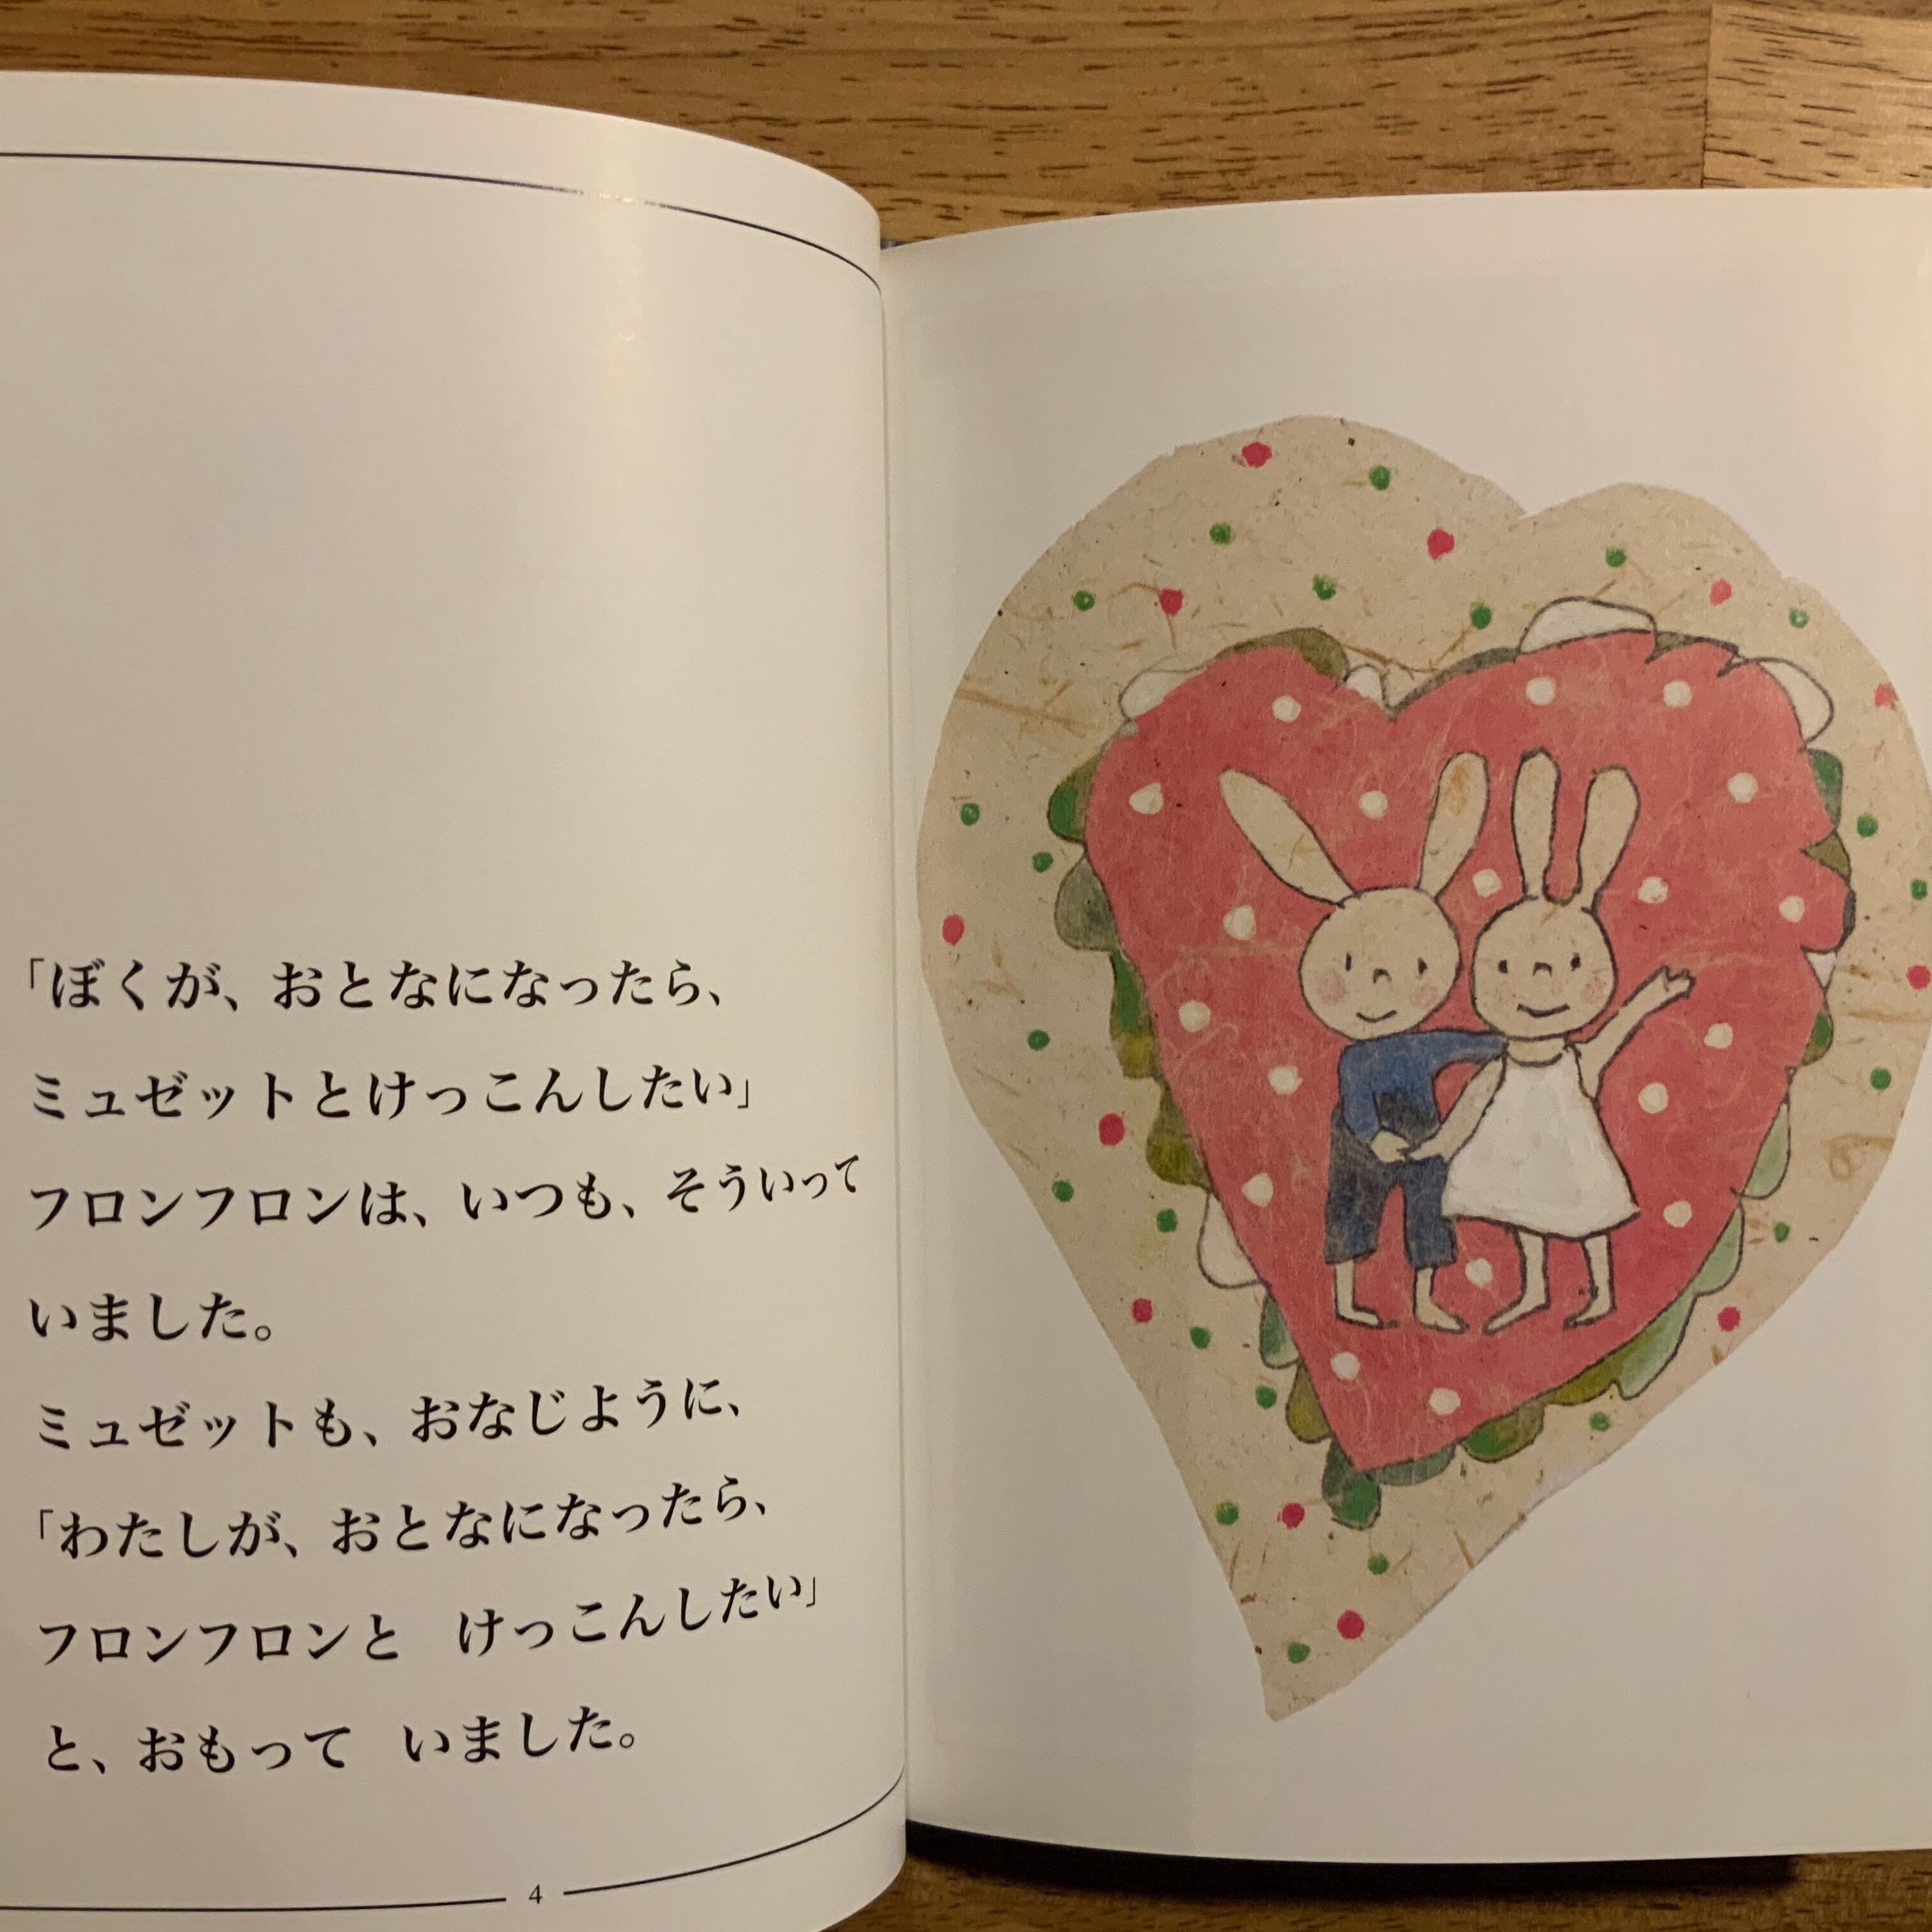 「ぼくが、おとなになったら、
ミュゼットとけっこんしたい」
フロンフロンは、いつも、そういって
いました。
ミュゼットも、おなじように、
「わたしが、おとなになったら、
フロンフロンと　けっこんしたい」
と、おもって　いました。
4